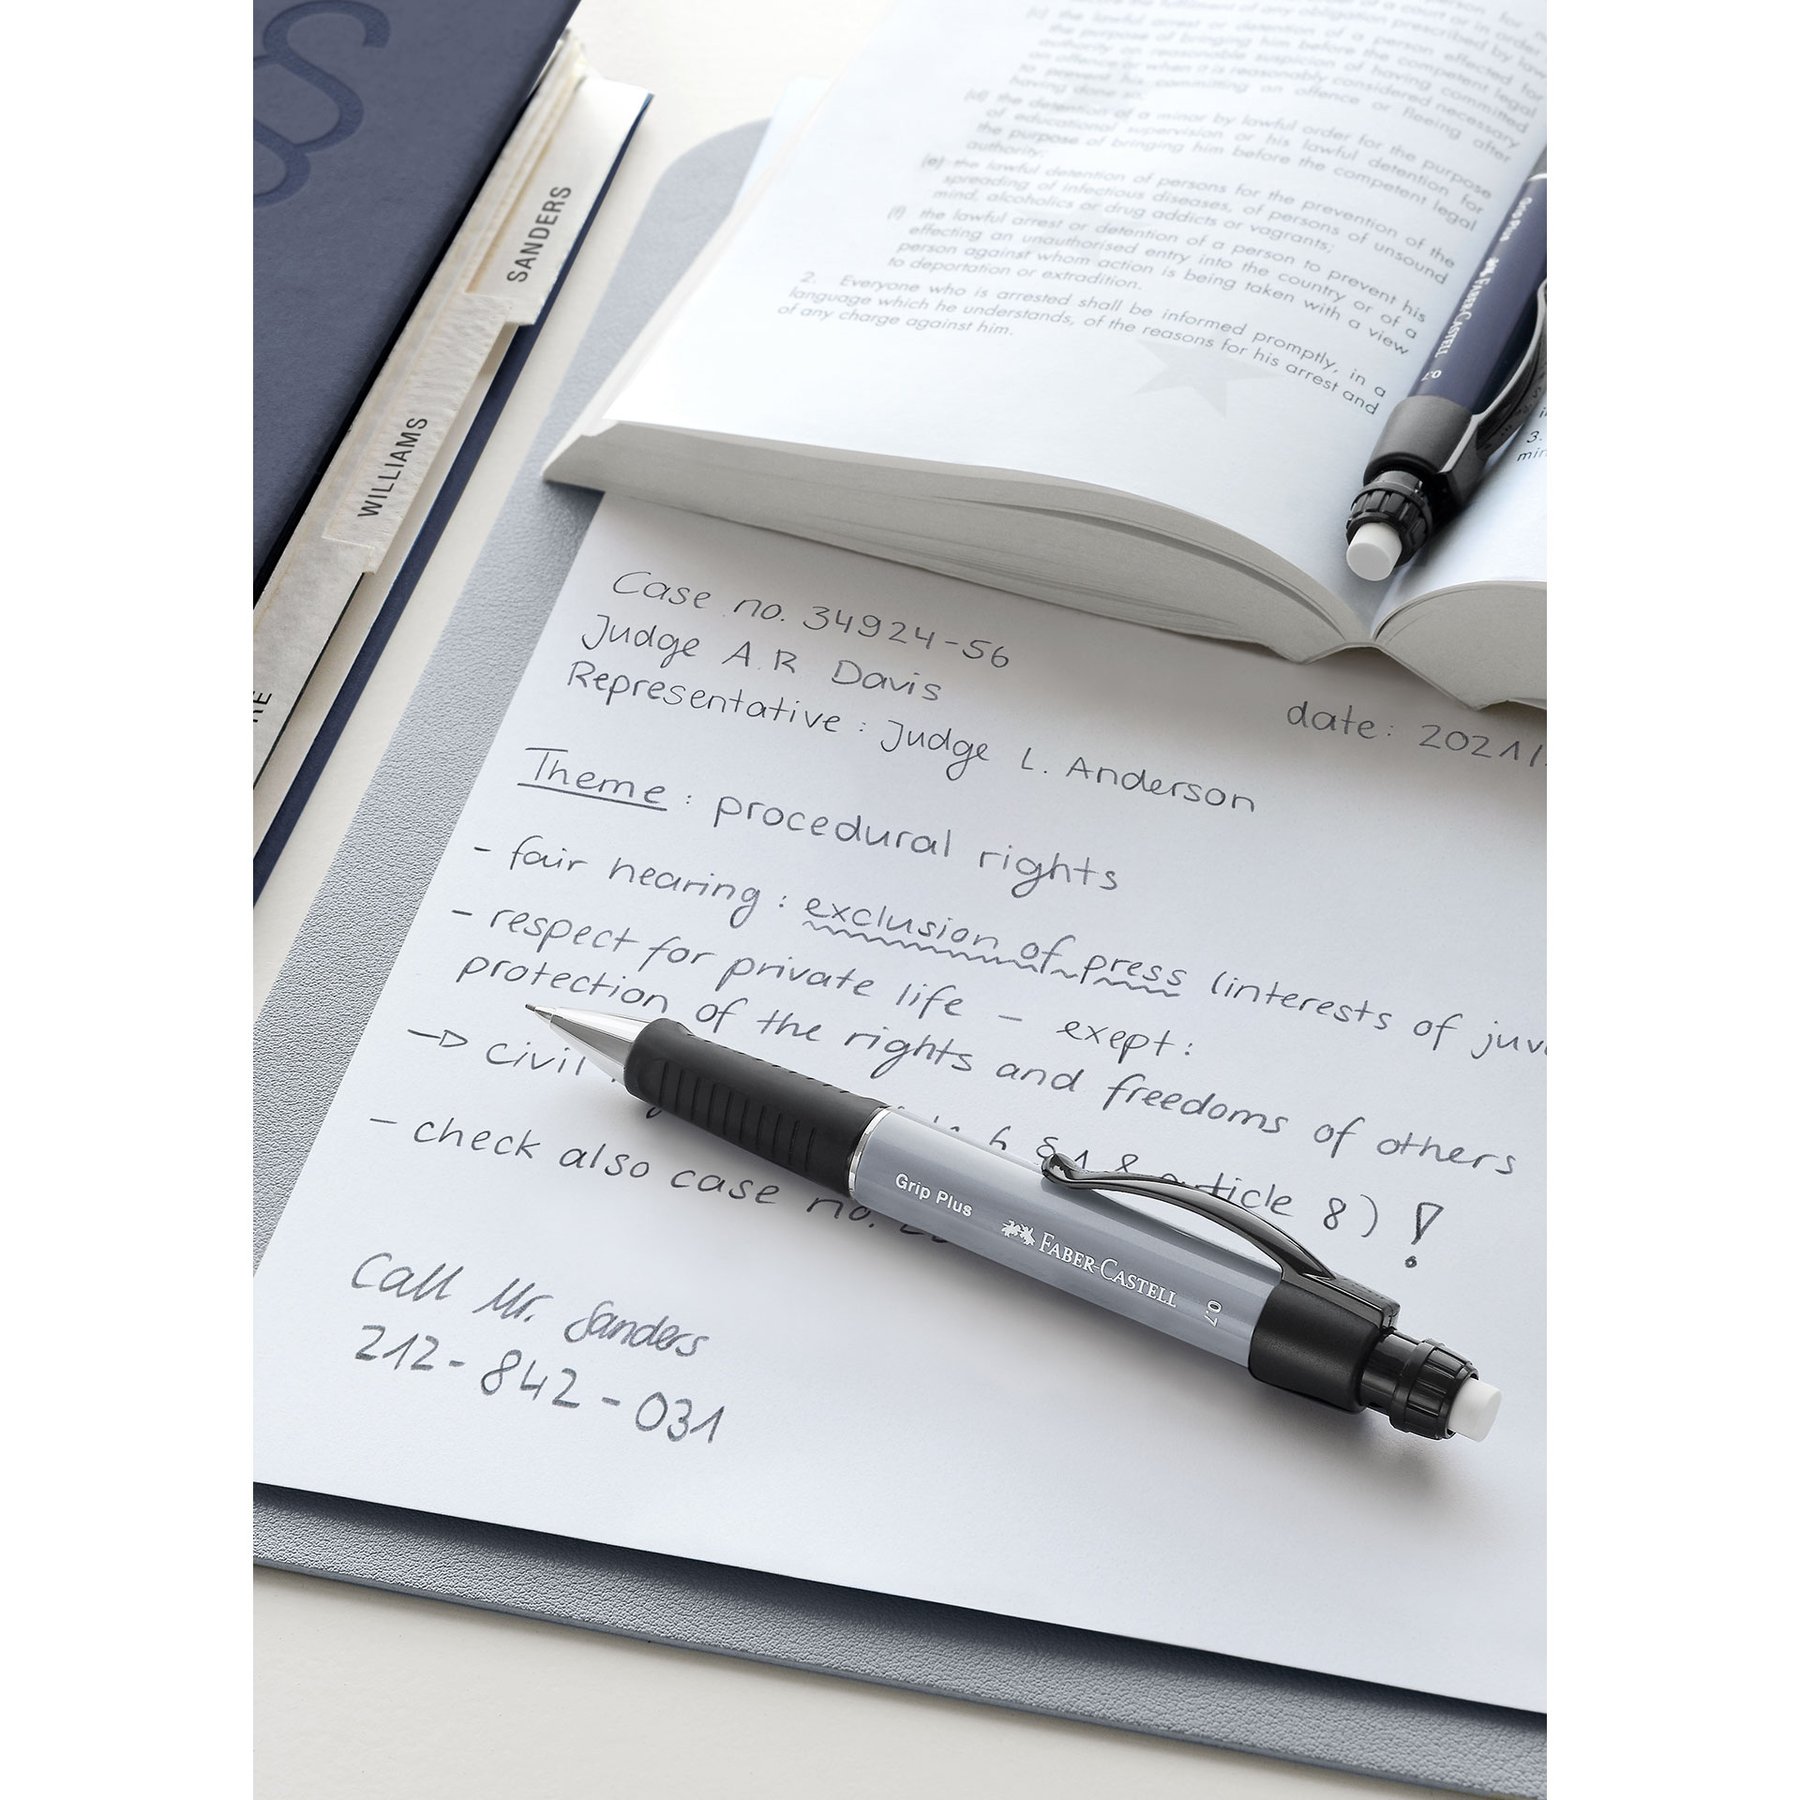 SANDERS
WILLIAMS
the lawful arrest or detention of a person effected for
the purpose of bringing him before the competent legal
authority on reasonable suspicion of having committed
an offence or when it is reasonably considered necessary
to prevent his committing an offence or fleeing after
having done so
(d) the detention of a minor by lawful order for the purpose
of educational supervision or his lawful detention for
the purpose of bringing him before the competent legal
authority;
(e) the lawful detention of persons for the prevention of the
spreading of infectious diseases, of persons of unsound
mind, alcoholics or drug addicts or vagrants;
(f) the lawful arrest or detention of a person to prevent his
effecting an unauthorised entry into the country or of a
person against whom action is being taken with a view
to deportation or extradition.
2. Everyone who is arrested shall be informed promptly, in a
language which he understands, of the reasons for his arrest and
of any charge against him.
Grip Plus FABER-CASTELL 0.7
3.
Case no. 34924-56
Judge A.R Davis
Representative : Judge L. Anderson
date: 2021/
Theme : procedural rights
- fair hearing : exclusion of press (interests of juv
- respect for private life - exept:
protection of the rights and freedoms of others
civil 6 §1 & article 8) !
- check also case no.
Call Mr. Sanders
212-842-031
Grip Plus FABER-CASTELL 0.7